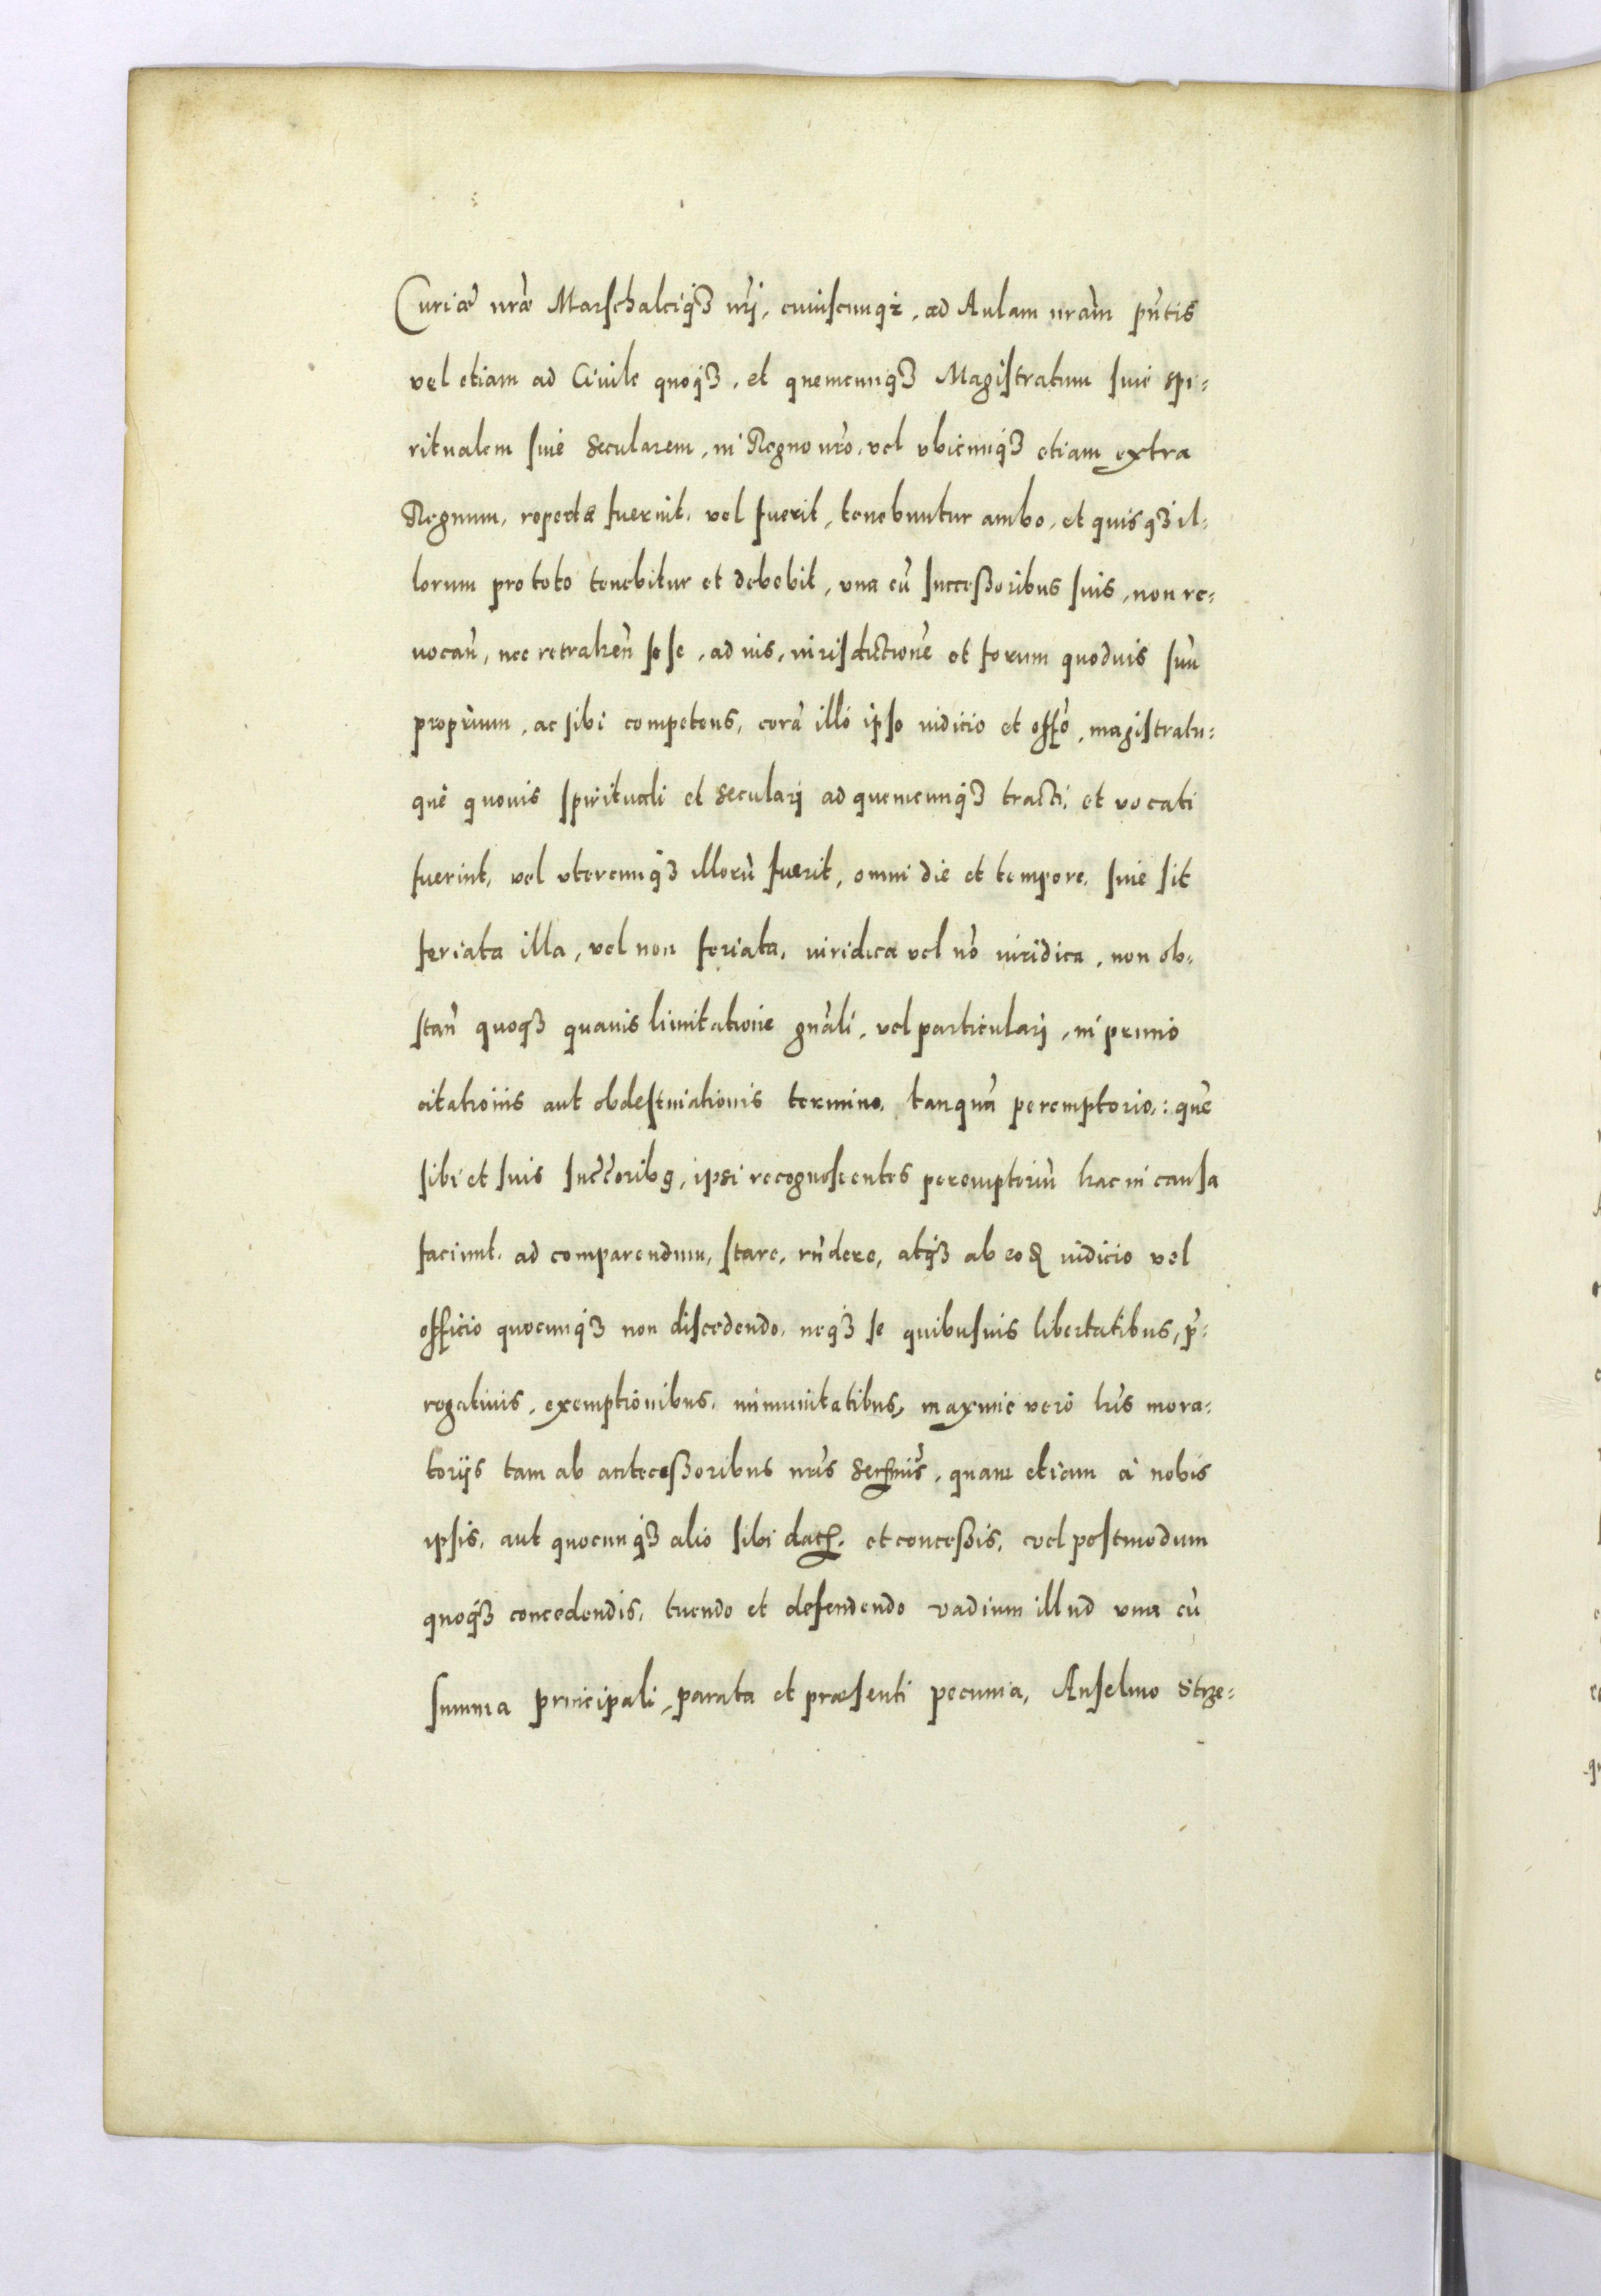 Curiæ nr̃æ Marschalciq́ꝫ nr̃j, cuiuscunq́ꝫ, ad Aulam nrãm pñtis
vel etiam ad Ciuile quoq́ꝫ, et quemcunq́ꝫ Magistratum siue spi=
ritualem siue Secularem, in Regno nr̃o, vel vbicunq́ꝫ etiam extra
Regnum, repertæ fuerint, vel fuerit, tenebuntur ambo, et quisqꝫ il=
lorum pro toto tenebitur et debebit, vna cũ successoribus suis, non re=
uocañ, nec retraheñ sese, ad ius, iurisdictionẽ et forum quoduis suũ
proprium, ac sibi competens, corã illo ipso iudicio et offo͂, magistratu=
que quouis spirituali et Secularj ad quemcunq́ꝫ tracti, et vocati
fuerint, vel vtercunq́ꝫ illorũ fuerit, omni die et tempore, siue sit
feriata illa, vel non feriata, iuridica vel nõ iuridica, non ob=
stañ quoqꝫ quauis limitatione gnãli, vel particularj, in primo
citationis aut obdestinationis termino, tanquã peremptorio: quẽ
sibi et suis succ̃oribꝯ, ipsi recognoscentes peremptoriũ hac in causa
faciunt, ad comparendum, stare, rñdere, atq́ꝫ ab eoꝺ iudicio vel
officio quocunq́ꝫ non discedendo, neq́ꝫ se quibusuis libertatibus, p̃=
rogatiuis, exemptionibus, immunitatibus, maxime vero lr̃is mora=
torijs tam ab antecessoribus nr̃is Serẽmis, quam etiam à nobis
ipsis, aut quocunq́ꝫ alio sibi datꝭ, et concessis, vel postmodum
quoq́ꝫ concedendis, tuendo et defendendo vadium illud vna cũ
summa principali, parata et præsenti pecunia, Anselmo Strze=